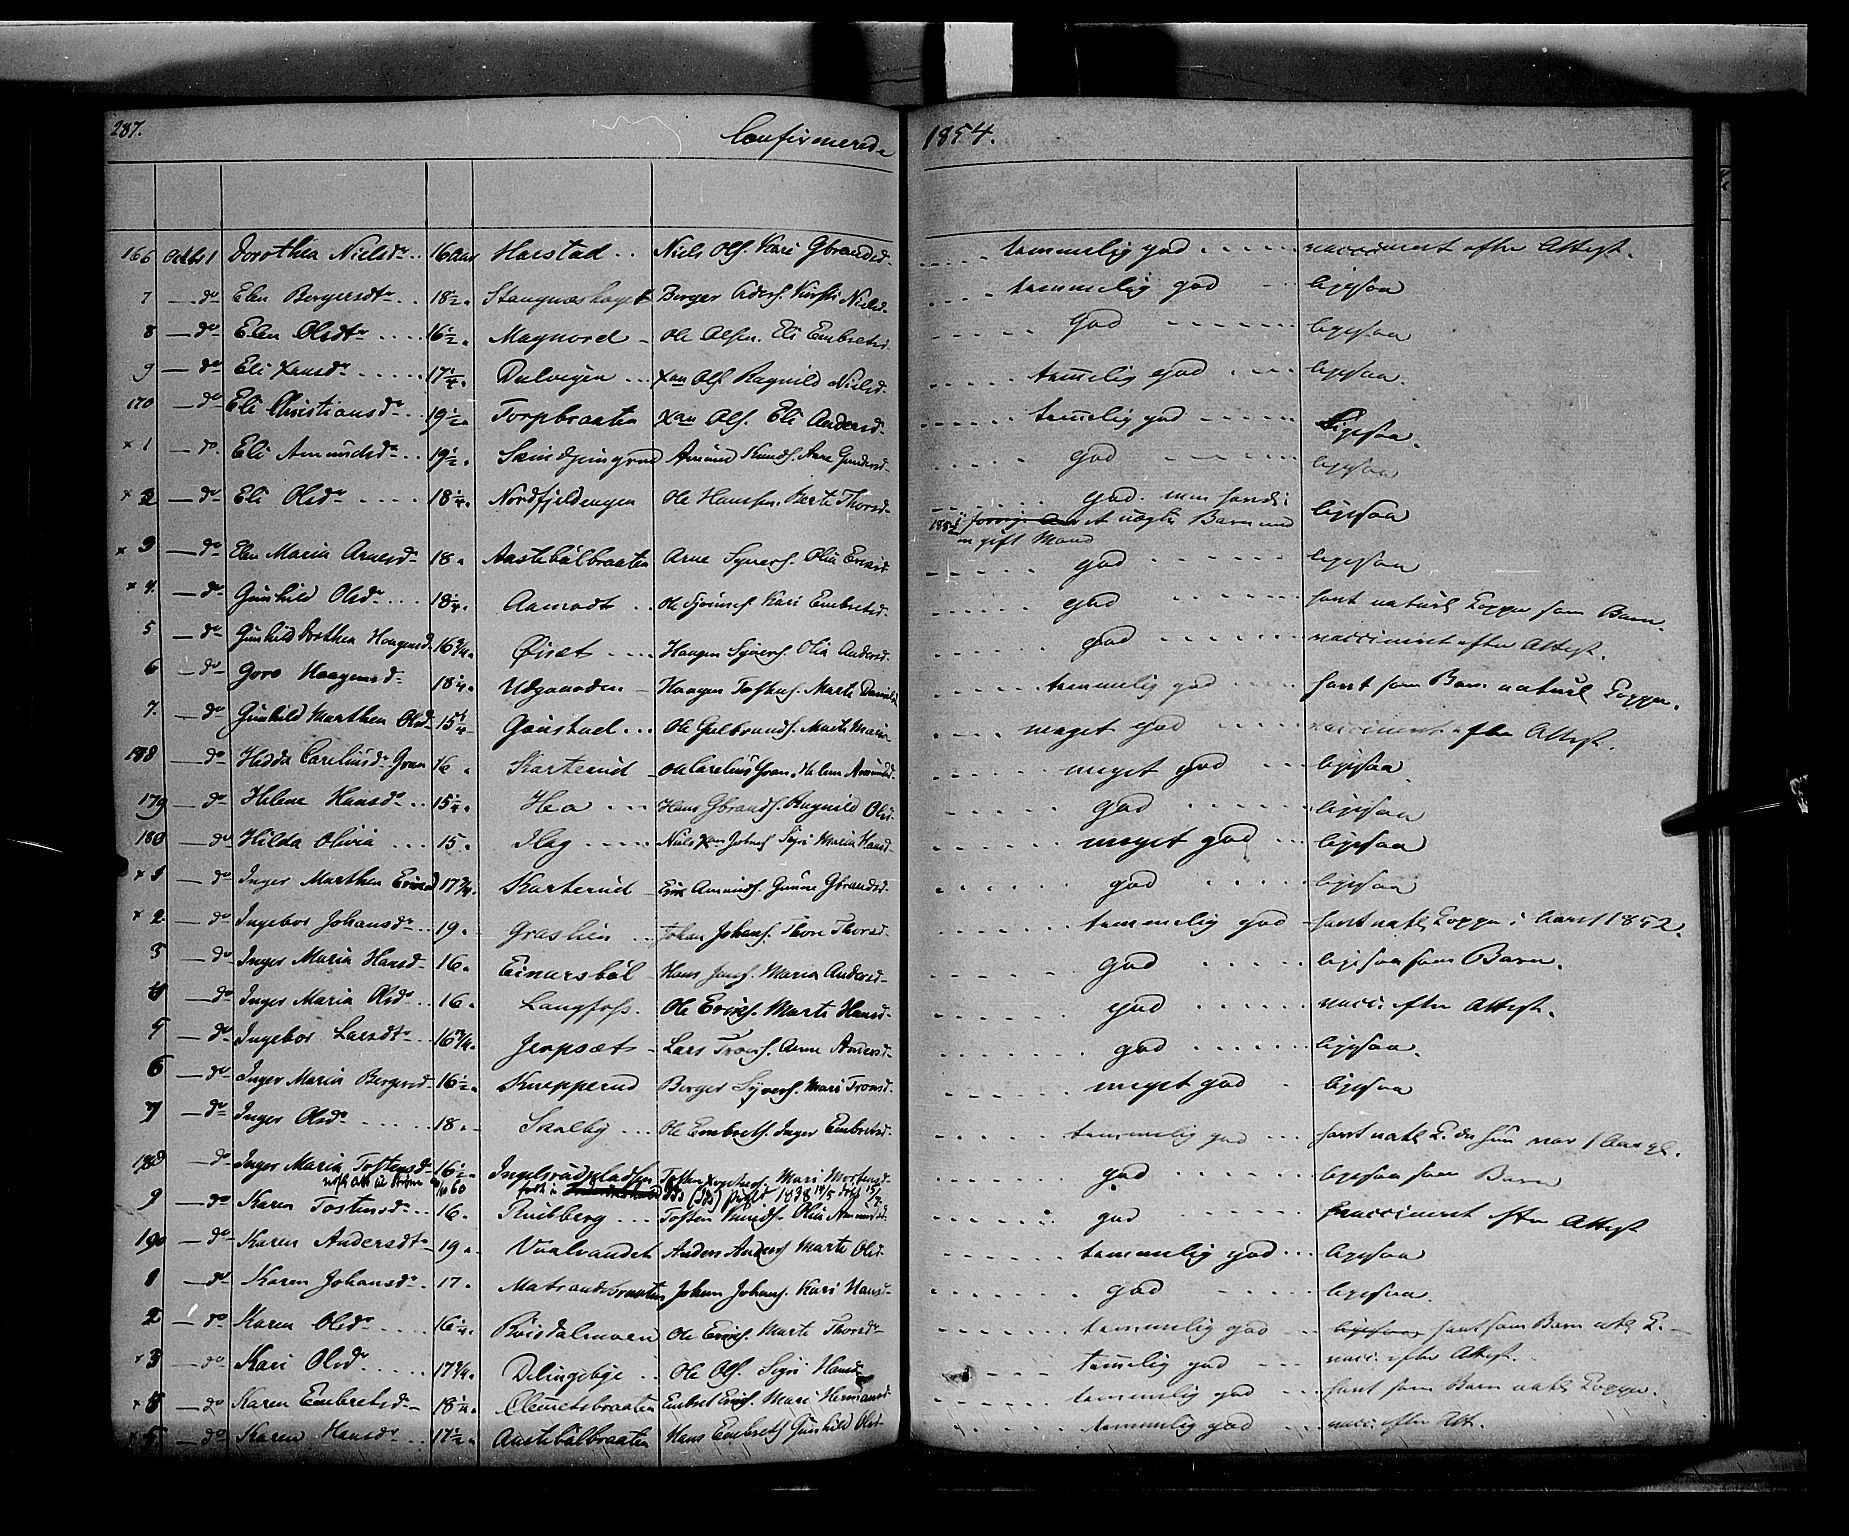 287. Confirmerede 1854.
166 Octb 1 Dorothea Nielsdr 16 Aar Harstad Niels Ols. Kari Gbrandsd. temmelig god vaccineret efter Attest.
7 do Elen Bergersdtr 18 1/2 Berger Kirsti Nielsd. temmelig god ligesaa
8 do Elen Olsdtr 16 1/2 Magnord Ole Olsen. Eli Embretsd. God ligesaa
9 do Eli Xansdr 17 1/4 Dulvigen Xan Ols. Ragnild Nielsd. temelig god ligesaa.
170 do Eli Christiansdr 19 1/2 Torpbraaten Xan Ols. Eli Andersd. temelig god Ligesaa.
x 1 do Eli Amundsdr 19 1/2 Amund Knuds. Anne Gundersd. god ligesaa
x 2 do Eli Olsdr 18 1/4 Nordfjeldengen Ole Hanssen. Berte Thorsd. god. men havde
et uægte Barn med ligesaa
en gift Mand
x 3 do Elen Maria Arnesd. 18 Aastebölbraaten Arne Syvers. Olia Ericsd. god ligesaa
x 4. do Gunhild Olsdr 18 1/4 Aamodt Ole Kari Embretsd. god havt naturl. Kopper som Barn.
5 do Gunhild Dorthea Haagensd. 16 3/4 Öiset Haagen Syvers. Olia Andersd. god vaccineret efter Attest.
6 do Goro Haagensd. 18 1/4 Udgaarden Haagen Tostens. Marte temmelig god havt som Barn naturl. Kopper.
7. do Gunhild Marthea Olsd. 15 1/4 Gaustad Ole Gulbrands. Marte Maria meget god vaccineret efter Attest.
178 do Hedda Carelius dr Gran 16 Skarterud Ole Carelius Gran. Helene Amundsd. meget god ligesaa
179 do Helene Hansdr 15 1/4 Hea Hans Gbrands. Ragnild Olsd. god ligesaa
180 do Hilda Olivia 15 Flag Niels Xan Johns. Sigri Maria Hansd. meget god ligesaa
x 1 do Inger Marthea Ericsd 17 3/4 Skarterud Eric Amunds. Gunne Gbrandsd. god ligesaa
x 2 do Ingebor Johansdr 19 Graslien Johan Johans. Thore Thorsd. temmelig god havt natl. Kopper i Aaret 1852.
3 do Inger Maria Hansd. 16 Einarsböl Hans Jens. Maria Andersd. god ligesaa som Barn.
4 do Inger Maria Olsdr 16 Langfoss. Ole Erics. Marte Hansd. god vacc. efter Attest.
5 do Ingebor Larsdtr 16 3/4 Jerpset Lars Trons. Anne Andersd. god ligesaa.
6 do Inger Maria Bergersd. 16 1/2 Knapperud Berger Syvers. Mari Tronsd. meget god ligesaa
7 do Inger Olsdr 18 Skulby Ole Embrets. Inger Embretsd. temmelig god havt natl. K. da hun var 1 Aar gl.
188 do Inger Maria Tostensd. 16 1/2 Ingelsrudpladsen Tosten Mari Mortensd. god ligesaa som Barn
9 do Karen Tostensdr 16 Rudberg Tosten Knuds. Olia Amundsd. god vaccineret efter Attest
190 do Karen Andersdtr 19 Vaalvandet Anders Anders. Marte Olsd. temmelig god ligesaa
1 do Karen Johansdr 17 Matrandbraaten Johan Johans. Kari Hansd. god ligesaa.
2 do Karen Olsdr 16 1/4 Böisdalmoen Ole Erics. Marte Thorsdr temmelig god ligesaa havt som Barn natl. K.
x 3 do Kari Olsdr 17 3/4 Delingebye Ole Ols. Sigri Hansd. temelig god vacc. efter Attest.
x 4 do Karen Embretsd. 18 1/4 Clemetsbraaten Embret Erics. Mari Hermansd. temmelig god havt som Barn natl. Kopper.
x 5 do Karen Hansdr 17 1/2 Aastebölbraaten Hans Embrets. Gunhild Olsd. temmelig god vacc. efter Att.